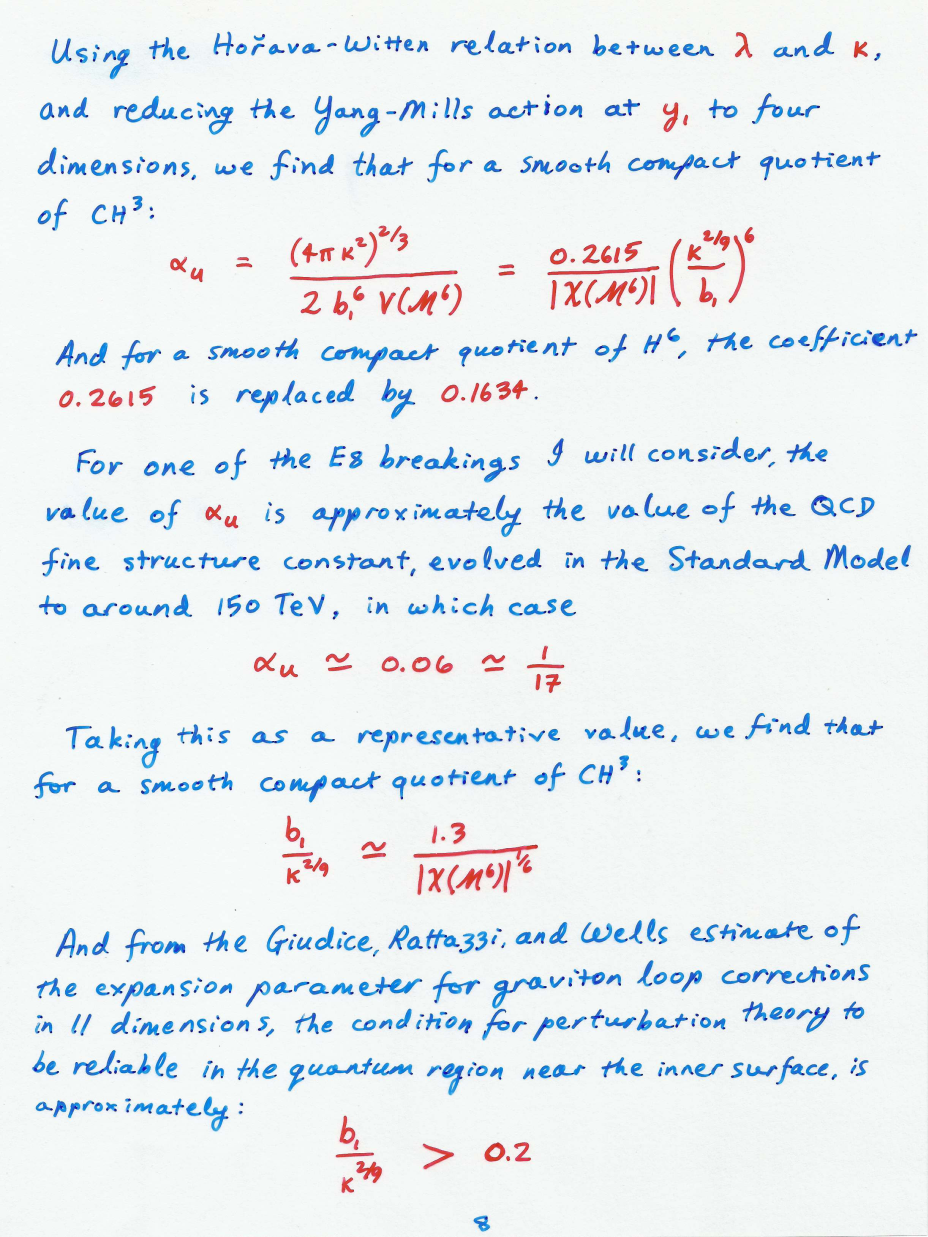 Using the Hořava-Witten relation between λ and κ,
and reducing the Yang-Mills action at y₁ to four
dimensions, we find that for a smooth compact quotient
of CH³:
α_u = (4π κ²)^{2/3} / (2 b₁⁶ V(M⁶)) = 0.2615 / |χ(M⁶)| (κ^{2/9} / b₁)⁶
And for a smooth compact quotient of H⁶, the coefficient
0.2615 is replaced by 0.1634.
For one of the E8 breakings I will consider, the
value of α_u is approximately the value of the QCD
fine structure constant, evolved in the Standard Model
to around 150 TeV, in which case
α_u ≃ 0.06 ≃ 1/17
Taking this as a representative value, we find that
for a smooth compact quotient of CH³:
b₁ / κ^{2/9} ≃ 1.3 / |χ(M⁶)|^{1/6}
And from the Giudice, Rattazzi, and Wells estimate of
the expansion parameter for graviton loop corrections
in 11 dimensions, the condition for perturbation theory to
be reliable in the quantum region near the inner surface, is
approximately:
b₁ / κ^{2/9} > 0.2
8